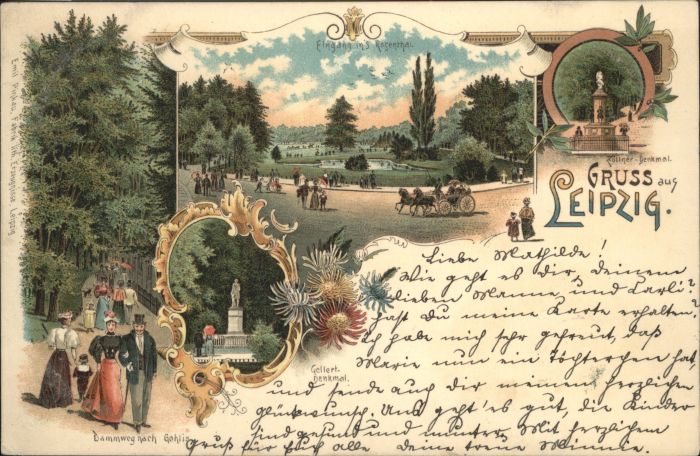 Eingang in's Rosenthal.
Zöllner-Denkmal.
GRUSS aus
LEIPZIG.
Gellert-
Denkmal.
Dammweg nach Gohlis.
Emil Pinkau, Leipzig
Liebe Mathilde!
Wie geht es dir, deinem
lieben Manne, und Karli?
hast du meine Karte erhalten.
Ich habe mich sehr gefreut, daß
Marie nun ein Töchterchen hat,
und sende auch dir meinen herzlichen
Glückwunsch. Uns geht's gut, die Kinder
sind gesund und munter. Mit herzlichem
Gruß für Euch alle deine treue Minnie.